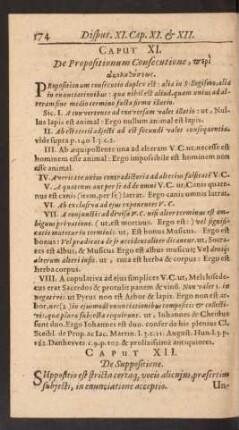 174 Disput. XI. Cap. XI. & XII.
CAPUT XI.
De Propositionum Consecutione, περὶ
PRopositionum consecutio duplex est: alia in Syllogismo, alia
in enunciationibus: qua nihil est aliud, quam unius ad al-
teram sine medio termino facta firma illatio.
Sic. I. A convertente ad conversam valet illatio: ut, Nul-
lus lapis est animal: Ergo nullum animal est lapis.
II. Ab est tertii adjecti ad est secundi valet consequentia.
vide supra p. 140 l. 3. c. 5.
III. Ab aequipollente una ad alteram V. C. ut necesse est
hominem esse animal: Ergo impossibile est hominem non
esse animal.
IV. A veritate unius contradictoria ad alterius falsitatē V. C.
V. A quatenus aut per se ad de omni V. C. ut, Canis quate-
nus est canis (item, per se) latrat. Ergo canis omnis latrat.
VI. Ab exclusiva ad ejus exponentes V. C.
VII. A conjunctis ad divisa V. C. nisi alter terminus est am-
biguus
Est bonus Musicus. Ergo est
bonus: Vel praedicata de se
So-
crates est albus, & Musicus: Ergo est albus musicus; Vel denique
alterum alteri insit. ut, ruta est herba & corpus: Ergo est
herba corpus.
VIII. A copulativa ad ejus simplices V. C. ut, Melchisedec-
us erat Sacerdos & protulit panem & vinū. Non valet 1. in
negativis: ut Pyrus non est Arbor & lapis. Ergo non est ar-
bor, nec (2) in ejusmodi enunciationibus compositis & collecti-
vis, qua plura subjecta requirunt. ut, Johannes & Christus
sunt duo. Ergo Johannes est duo. confer de his plenius Cl.
Scribl. de Prop. ac Jac. Martin. l. 3. c. 11. August. Hun. l. 3. p.
162. Danhever. c. 9. p. 103. & prolixissimè antiquiores.
CAPUT XII.
De Suppositione.
SUppositio est stricta certaq; vocis alicujus, praesertim
subjecti, in enunciatione acceptio. Un-